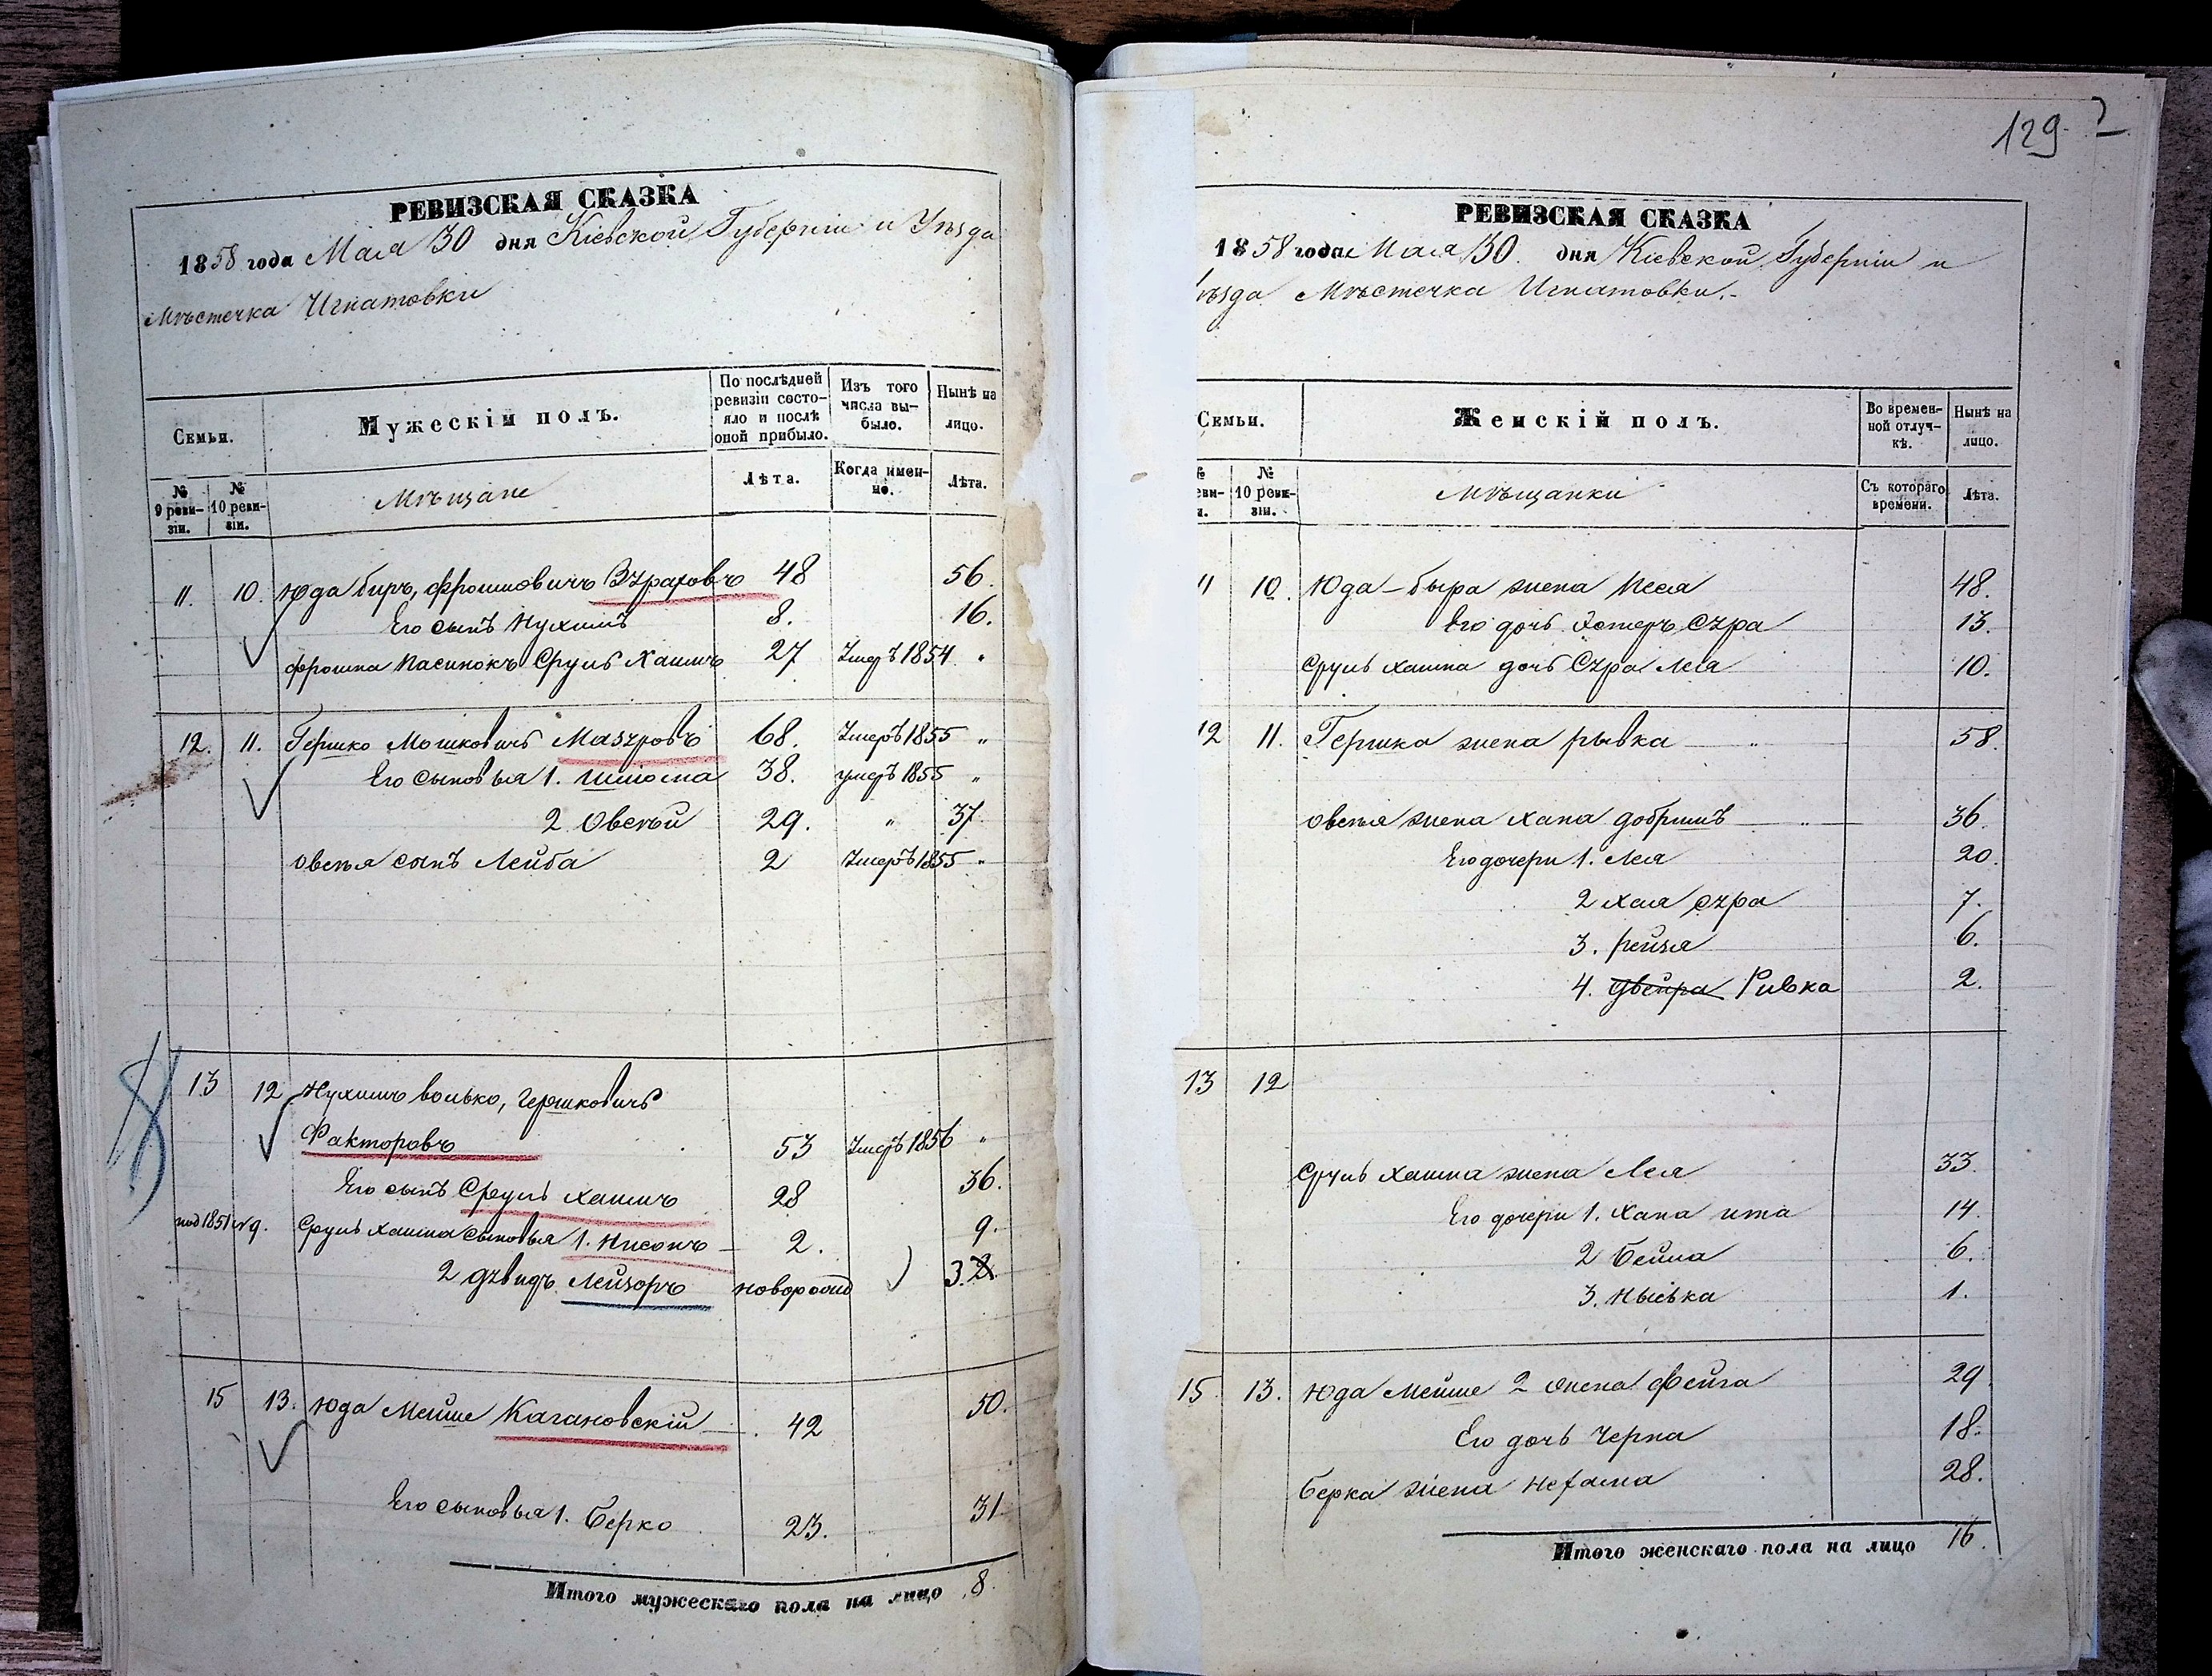 129
РЕВИЗСКАЯ СКАЗКА
1858 года Мая 30 дня Кіевской Губерніи и Уѣзда
Мѣстечка Игнатовки
Семьи.
Мужескій полъ.
По послѣдней ревизіи состояло и послѣ оной прибыло.
Изъ того числа выбыло.
Нынѣ на лицо.
№ 9 ревизіи.
№ 10 ревизіи.
Мѣщане
Лѣта.
Когда именно.
Лѣта.
11. 10. Юда биръ, фроимовичъ 48 56.
Его сынъ Нухимъ 8. 16.
фроима пасинокъ Сруль Хаимъ 27 Умеръ 1854 "
12. 11. Гершко Мошковичъ Мазуровъ 68. Умеръ 1855 "
Его сыновья 1. Шлиома 38. умеръ 1855 "
2 Овсѣй 29. " 37
овсѣя сынъ Лейба 2 Умеръ 1855 "
13 12 Нухимъ волько, Гершковичъ
Факторовъ 53 Умеръ 1856 "
Его сынъ Сруль хаимъ 28 36.
Сруль хаима сыновья 1. Нисонъ 2. 9.
2 Лейзоръ новорожд 3. 2.
15 13. Юда Мейше Кагановскій 42 50.
Его сыновья 1. Берко 23. 31
Итого мужескаго пола на лицо 8.
РЕВИЗСКАЯ СКАЗКА
1858 года Мая 30. дня Кіевской Губерніи и
ѣзда Мѣстечка Игнатовки.
Семьи.
Женскій полъ.
Во временной отлучкѣ.
Нынѣ на лицо.
№ 10 ревизіи.
Мѣщанки
Съ котораго времени.
Лѣта.
11 10. Юда-быра жена Песя 48.
Его дочь Эстеръ Сура 13.
Сруль хаима дочь Сура Лея 10.
12 11. Гершка жена рывка " 58.
овсѣя жена хана добришъ " 36.
Его дочери 1. Лея 20.
2 хая сура 7.
3. рейзя 6.
4. двейра Ривка 2.
13 12
Сруль хаима жена Лея 33.
Его дочери 1. Хана ита 14.
2 Бейла 6.
3. Ныська 1.
15 13. Юда Мейше 2 жена Фейга 29
Его дочь Черна 18.
Берка жена Нехама 28.
Итого женскаго пола на лицо 16.